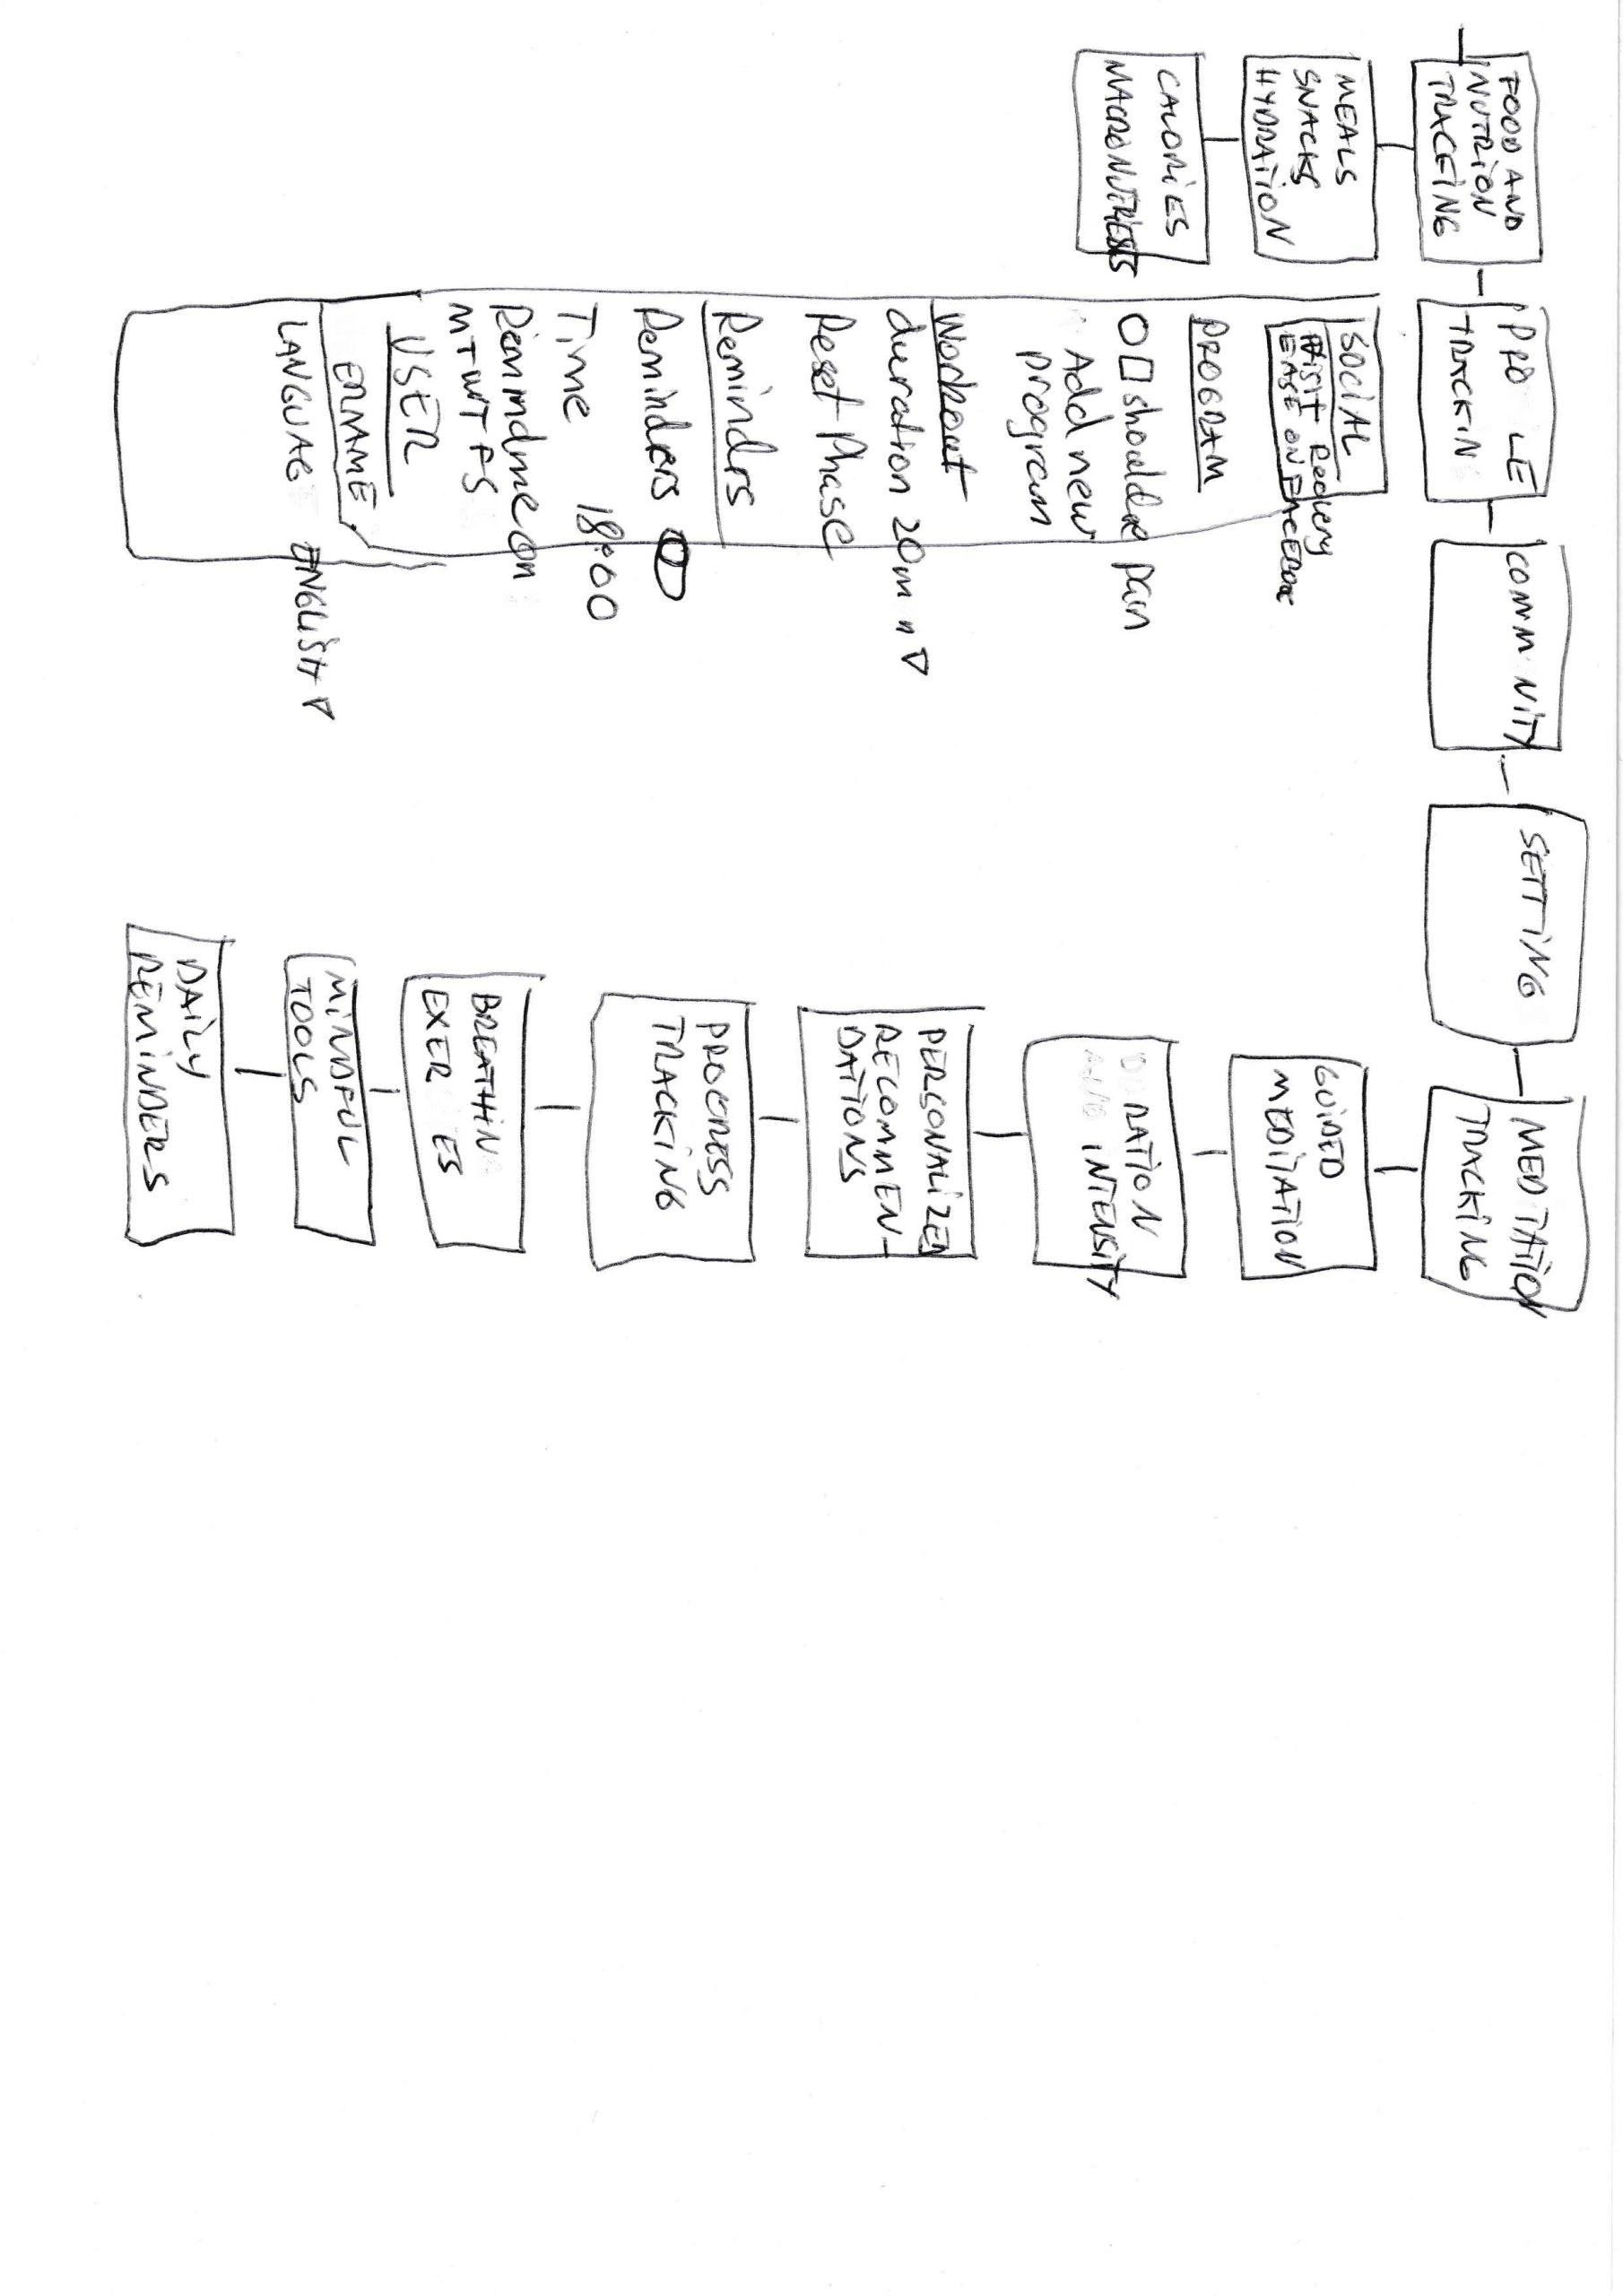 FOOD AND
NUTRION
TRACEING
MEALS
SNACKS
HYDRATION
CALORIES
PRO LE
TRACKIN
SOCIAL
VISIT Recovery
EASE ON FACEBOOK
PROGRAM
shoulder pain
Add new
program
Workout
duration 20m n
Reset Phase
Remindrs
Reminders
Time 18:00
Remindme on
M T W T F S
USER
ERNAME
LANGUAG ENGLISH
COMM NITY
SETTING
MED TATION
TRACKING
GUIDED
MEDITATION
D RATION
INTENSITY
PERSONALIZED
RECOMMEN-
DATIONS
PROGRESS
TRACKING
BREATHIN
EXER ES
MINDFUL
TOOLS
DAILY
REMINDERS